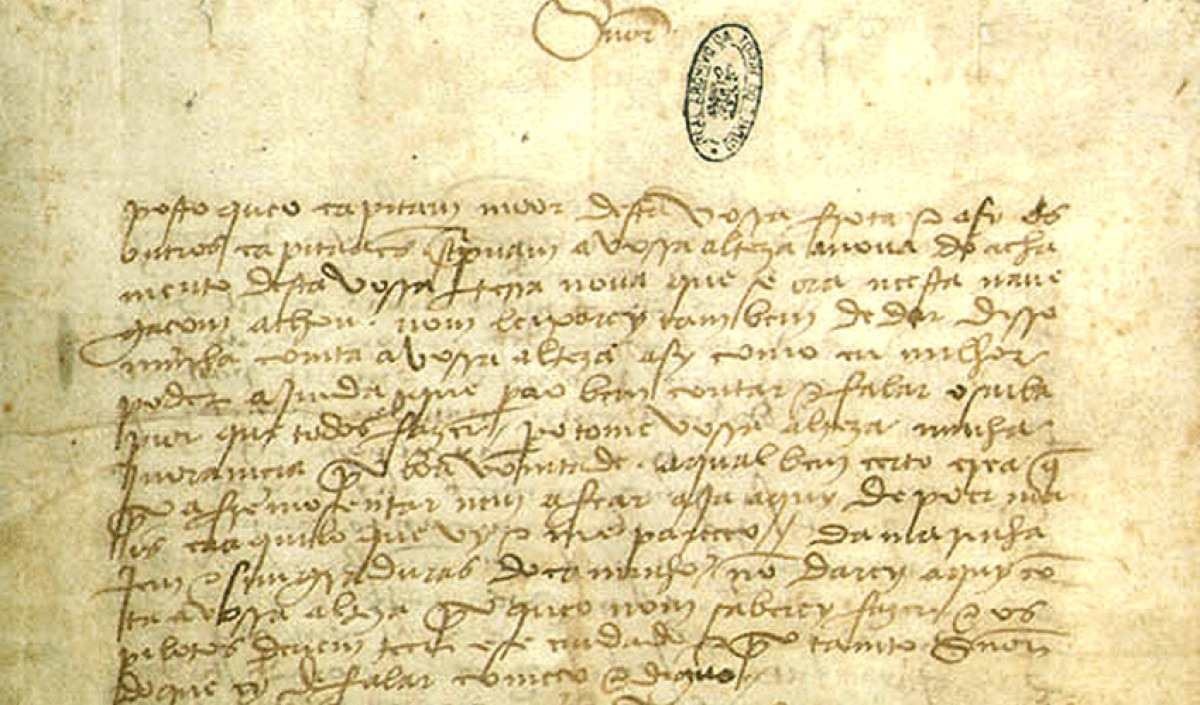 Snor
posto queo capitam moor desta vossa frota e asy os
outros capitaães screpuam a vossa alteza a noua do acha
mento desta vossa terra noua que se ora neesta naue
gaçom achou. nom leixarey tambem de dar disso
minha comta avossa alteza asy como eu milhor
poder ajmda que pera o bem contar e falar o saiba
pior que todos fazer. / pero tome vossa alteza minha
jnoramçia por boa vomtade. aqual bem çerto crea q̃
por afremosentar nem afear aja aquy de poer ma
is caaquilo que vy e me pareçeo. / da marinha
jem e simgraduras do caminho / nõ darey aquy cõ
ta avossa alteza porque o nom saberey fazer e os
pilotos deuem teer ese cuidado e por tamto Snõr
do que ey de falar começo e diguo /